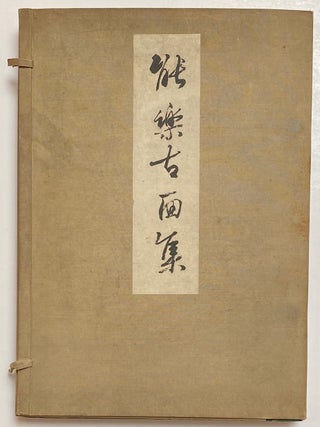 能樂古面集